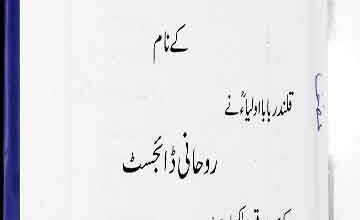 کے نام
قلندر بابا اولیاءؒ نے
روحانی ڈائجسٹ